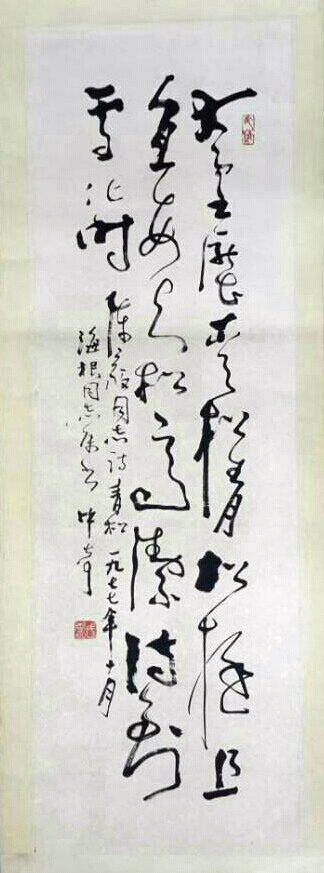 大雪壓青松青松挺且
直要知松高潔待到
雪化時
陳毅同志诗青松 一九七七年十月
海根同志属书